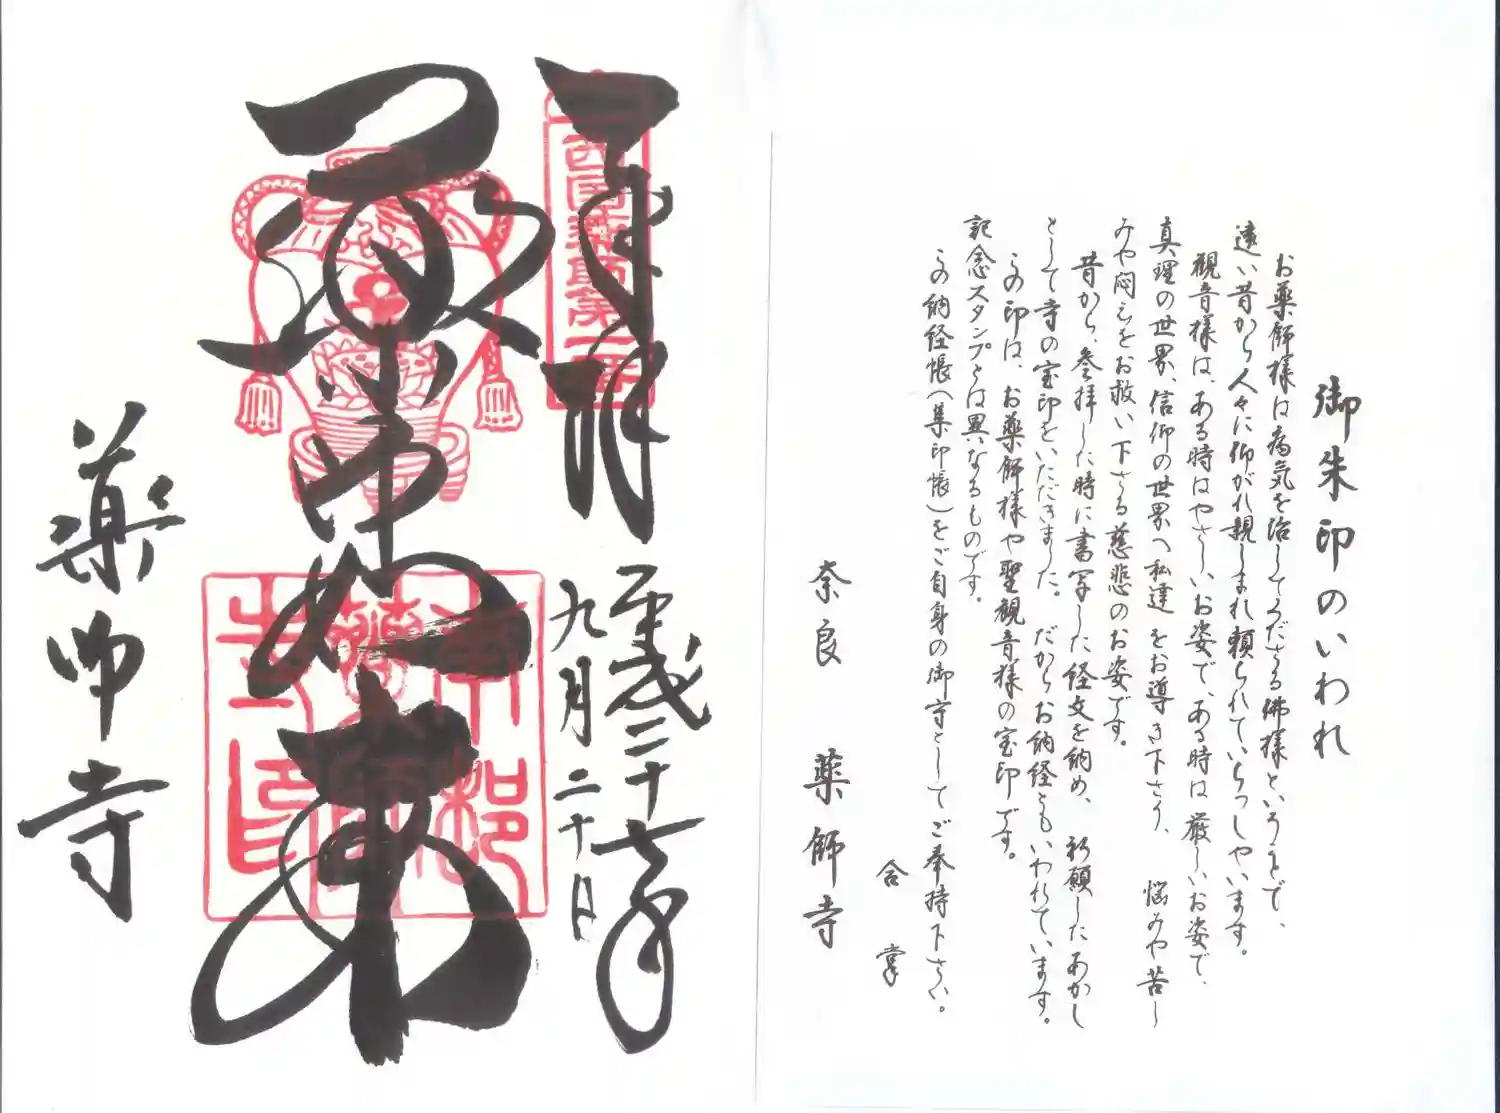 御朱印のいわれ
お薬師様は病気を治してくださる佛様ということで、
遠い昔から人々に仰がれ親しまれ頼られていらっしゃいます。
観音様は、ある時はやさしいお姿で、ある時は厳しいお姿で、
真理の世界、信仰の世界へ私達をお導き下さり、悩みや苦し
みや悶えをお救い下さる慈悲のお姿です。
昔から、参拝した時に書写した経文を納め、祈願したあかし
として寺の宝印をいただきました。だからお納経ともいわれています。
この印は、お薬師様や聖観音様の宝印です。
記念スタンプとは異なるものです。
この納経帳(集印帳)をご自身の御守としてご奉持下さい。
合掌
奈良 薬師寺
奉拝
西国薬師第一番
平成二十六年
九月二十日
薬師如来
南都
薬師
寺印
薬師寺